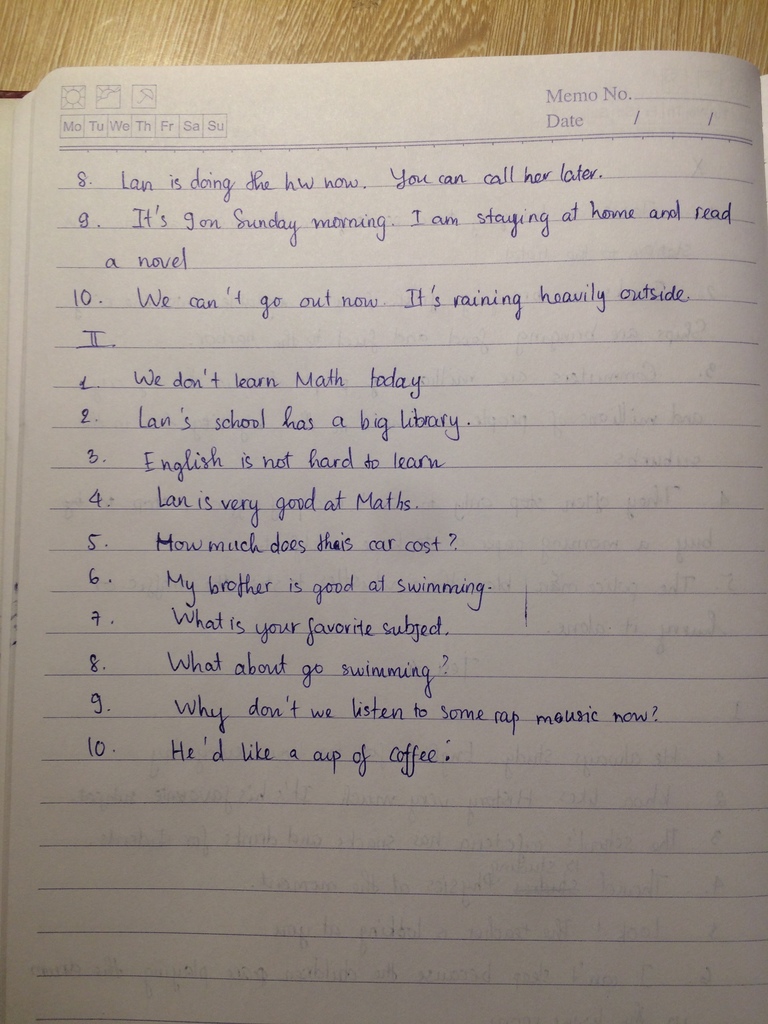 Memo No.
Mo Tu We Th Fr Sa Su
Date / /
8. Lan is doing the hw now. You can call her later.
9. It's 9 on Sunday morning. I am staying at home and read
a novel
10. We can't go out now. It's raining heavily outside.
II.
1. We don't learn Math today
2. Lan's school has a big library.
3. English is not hard to learn
4. Lan is very good at Maths.
5. How much does this car cost?
6. My brother is good at swimming.
7. What is your favorite subject.
8. What about go swimming?
9. Why don't we listen to some rap music now?
10. He'd like a cup of coffee.